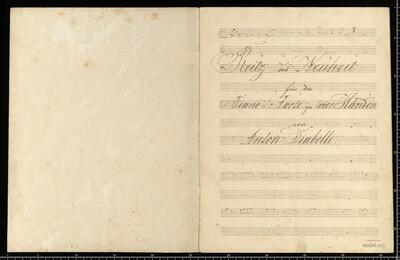 Reitz der Neuheit
für das
Piano-Forte zu vier Händen
von
Anton Diabelli